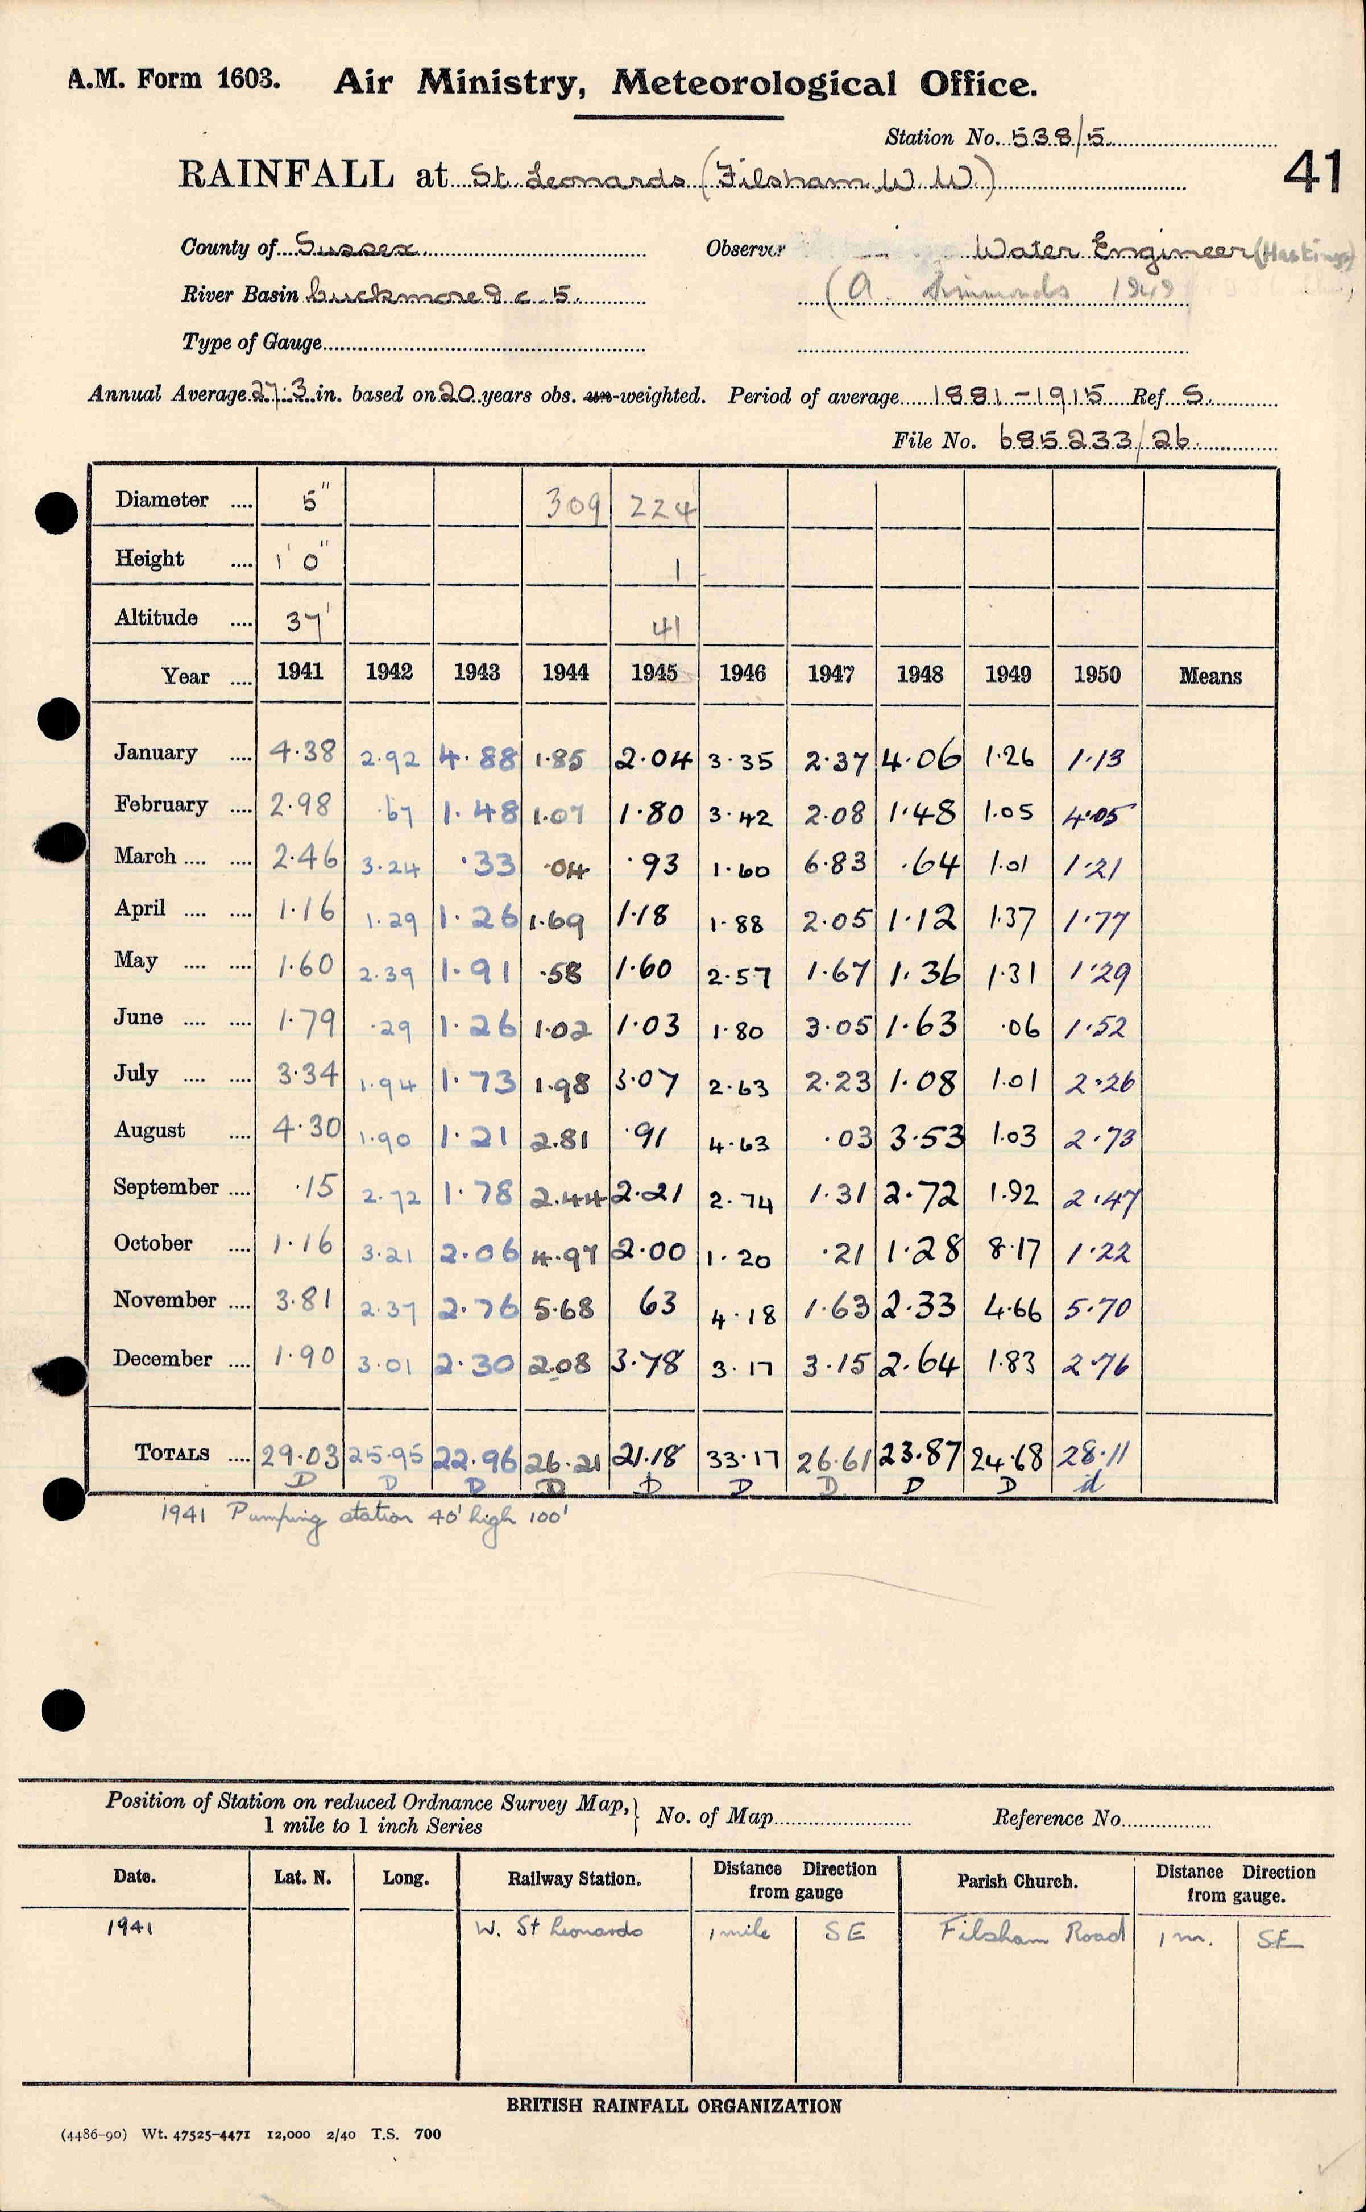 A.M. Form 1603. Air Ministry, Meteorological Office.
Station No. 538/5
41
RAINFALL at St. Leonards (Filsham W.W.)
County of Sussex Observer Water Engineer (Hastings)
River Basin Cuckmere &c 5. (A. Simmonds 1949
Type of Gauge
Annual Average 27.3 in. based on 20 years obs. un-weighted. Period of average 1881-1915 Ref S.
File No. 685233/26
Diameter .... 5" 309 224
Height .... 1' 0" 1
Altitude .... 37' 41
Year .... 1941 1942 1943 1944 1945 1946 1947 1948 1949 1950 Means
January .... 4.38 2.92 4.88 1.85 2.04 3.35 2.37 4.06 1.26 1.13
February .... 2.98 .67 1.48 1.07 1.80 3.42 2.08 1.48 1.05 4.05
March .... .... 2.46 3.24 .33 .04 .93 1.60 6.83 .64 1.01 1.21
April .... .... 1.16 1.29 1.26 1.69 1.18 1.88 2.05 1.12 1.37 1.77
May .... .... 1.60 2.39 1.91 .58 1.60 2.57 1.67 1.36 1.31 1.29
June .... .... 1.79 .29 1.26 1.02 1.03 1.80 3.05 1.63 .06 1.52
July .... .... 3.34 1.94 1.73 1.98 3.07 2.63 2.23 1.08 1.01 2.26
August .... 4.30 1.90 1.21 2.81 .91 4.63 .03 3.53 1.03 2.73
September .... .15 2.72 1.78 2.44 2.21 2.74 1.31 2.72 1.92 2.47
October .... 1.16 3.21 2.06 4.97 2.00 1.20 .21 1.28 8.17 1.22
November .... 3.81 2.37 2.76 5.68 63 4.18 1.63 2.33 4.66 5.70
December .... 1.90 3.01 2.30 2.08 3.78 3.17 3.15 2.64 1.83 2.76
TOTALS .... 29.03 25.95 22.96 26.21 21.18 33.17 26.61 23.87 24.68 28.11
D D D D D D D D D d
1941 Pumping station 40' high 100'
Position of Station on reduced Ordnance Survey Map, 1 mile to 1 inch Series } No. of Map Reference No.
Date. Lat. N. Long. Railway Station. Distance Direction from gauge Parish Church. Distance Direction from gauge.
1941 W. St Leonards 1 mile SE Filsham Road 1 m. SE
BRITISH RAINFALL ORGANIZATION
(4486-90) Wt. 47525-4471 12,000 2/40 T.S. 700